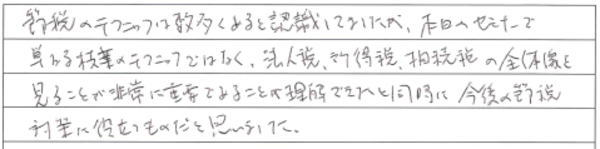 節税のテクニックは数多くあると認識していましたが、本日のセミナーで
単なる枝葉のテクニックではなく、法人税、所得税、相続税の全体像を
見ることが非常に重要であることが理解できたと同時に今後の節税
対策に役立つものだと思いました。